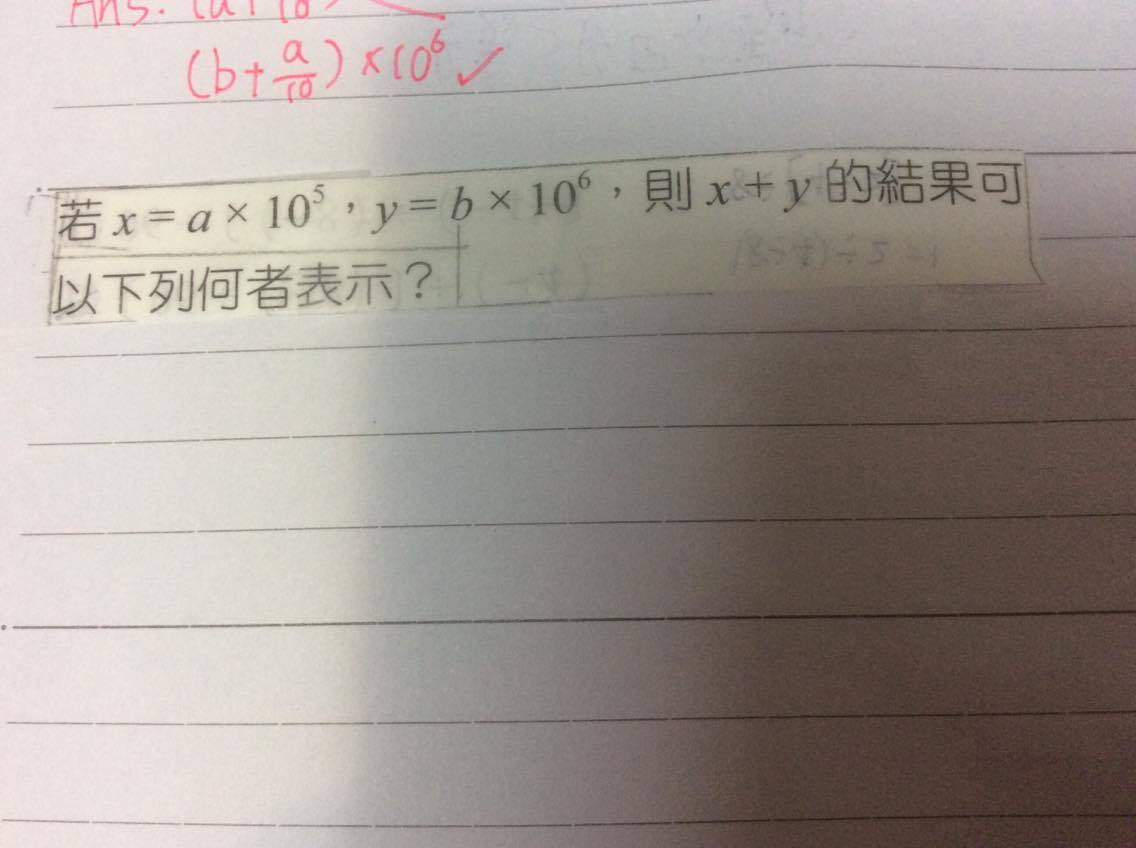 Ans:
(b+a/10)×10⁶ ✓
若 x = a × 10⁵，y = b × 10⁶，則 x + y 的結果可
以下列何者表示？